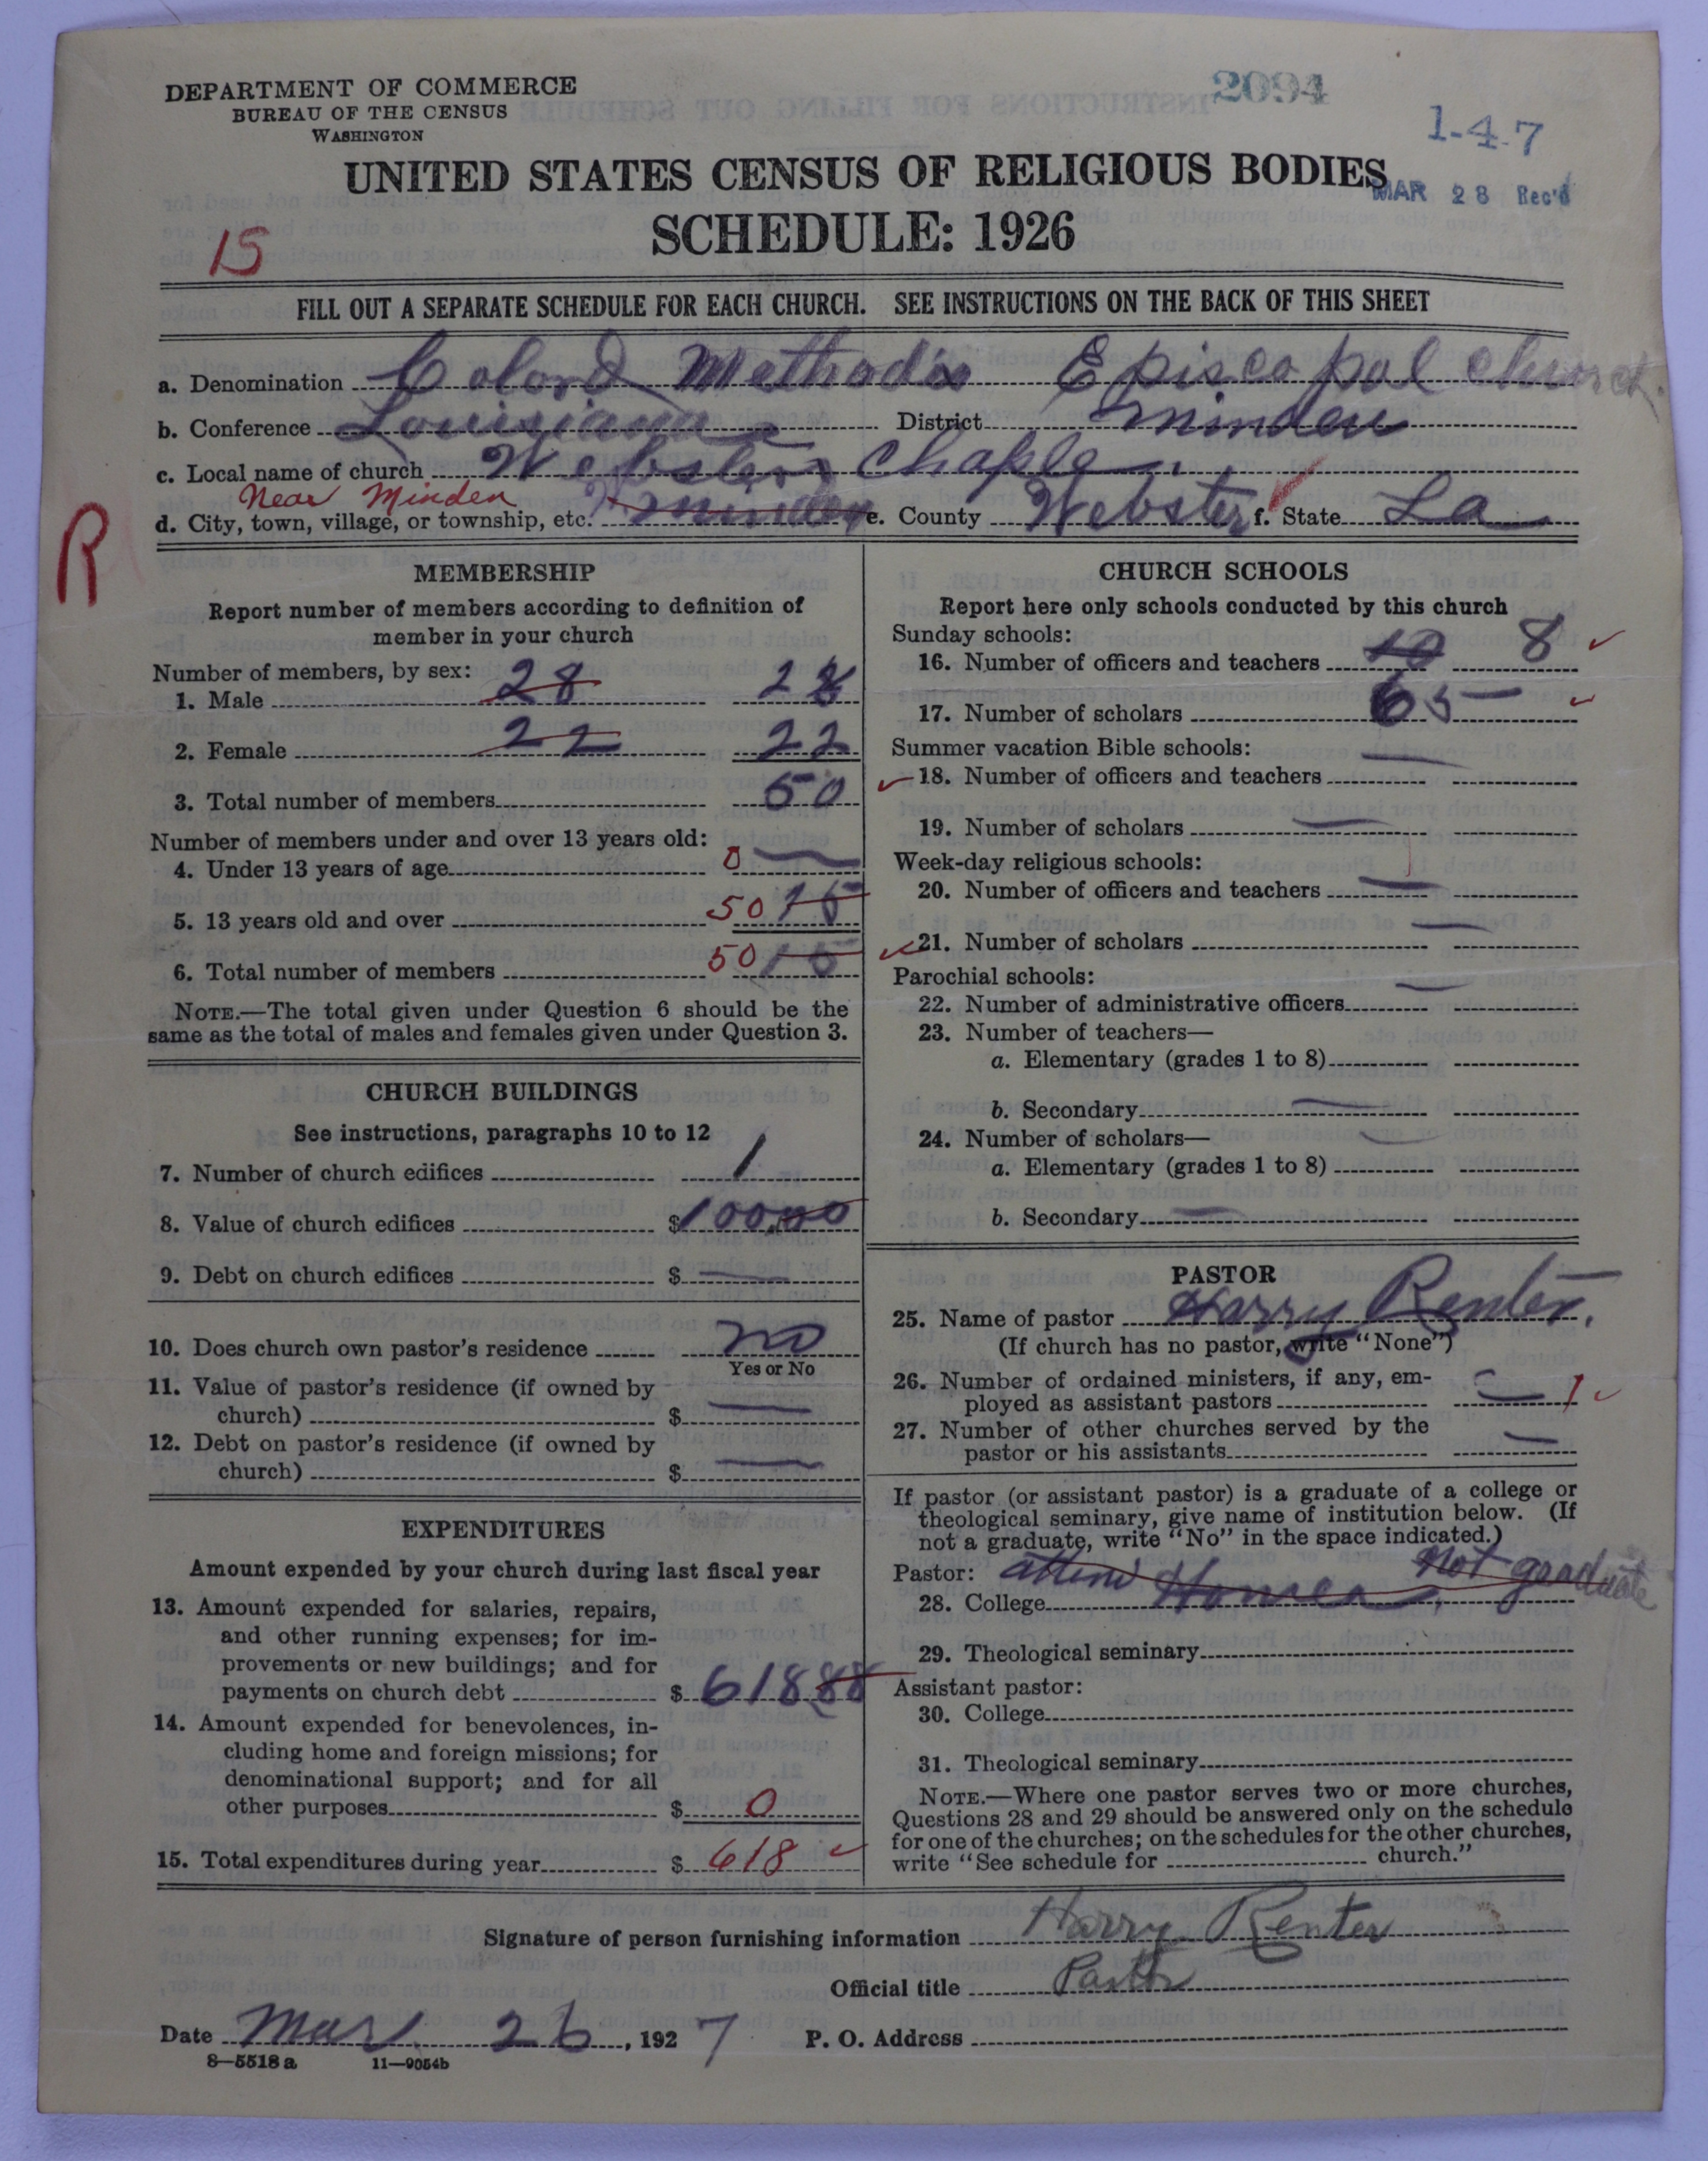 2094
DEPARTMENT OF COMMERCE
BUREAU OF THE CENSUS
WASHINGTON
1-4-7
UNITED STATES CENSUS OF RELIGIOUS BODIES
MAR 28 Rec'd
SCHEDULE: 1926
15
FILL OUT A SEPARATE SCHEDULE FOR EACH CHURCH. SEE INSTRUCTIONS ON THE BACK OF THIS SHEET
a. Denomination Colord Methodis Episcopal Church.
b. Conference Louisiana District Minden
c. Local name of church Websters Chaple
Near Minden
d. City, town, village, or township, etc. Minden e. County Webster f. State La
R
MEMBERSHIP
Report number of members according to definition of
member in your church
Number of members, by sex:
1. Male 28 28
2. Female 22 22
3. Total number of members 50
Number of members under and over 13 years old:
4. Under 13 years of age 0 —
5. 13 years old and over 50 15
6. Total number of members 50 15
NOTE.—The total given under Question 6 should be the
same as the total of males and females given under Question 3.
CHURCH BUILDINGS
See instructions, paragraphs 10 to 12
7. Number of church edifices 1
8. Value of church edifices $ 100.00
9. Debt on church edifices $ —
10. Does church own pastor's residence no
Yes or No
11. Value of pastor's residence (if owned by
church) $ —
12. Debt on pastor's residence (if owned by
church) $ —
EXPENDITURES
Amount expended by your church during last fiscal year
13. Amount expended for salaries, repairs,
and other running expenses; for im-
provements or new buildings; and for
payments on church debt $ 618.88
14. Amount expended for benevolences, in-
cluding home and foreign missions; for
denominational support; and for all
other purposes $ 0
15. Total expenditures during year $ 618
CHURCH SCHOOLS
Report here only schools conducted by this church
Sunday schools:
16. Number of officers and teachers 10 8
17. Number of scholars 65 —
Summer vacation Bible schools:
18. Number of officers and teachers —
19. Number of scholars —
Week-day religious schools:
20. Number of officers and teachers —
21. Number of scholars —
Parochial schools:
22. Number of administrative officers —
23. Number of teachers—
a. Elementary (grades 1 to 8)
b. Secondary —
24. Number of scholars—
a. Elementary (grades 1 to 8) —
b. Secondary —
PASTOR
25. Name of pastor Harry Renter.
(If church has no pastor, write "None")
26. Number of ordained ministers, if any, em-
ployed as assistant pastors — 1
27. Number of other churches served by the
pastor or his assistants —
If pastor (or assistant pastor) is a graduate of a college or
theological seminary, give name of institution below. (If
not a graduate, write "No" in the space indicated.)
Pastor: not graduate
28. College
29. Theological seminary
Assistant pastor:
30. College
31. Theological seminary
NOTE.—Where one pastor serves two or more churches,
Questions 28 and 29 should be answered only on the schedule
for one of the churches; on the schedules for the other churches,
write "See schedule for church."
Signature of person furnishing information Harry Renter
Official title Pastor
Date Mar 26, 1927 P. O. Address
8—5518 a 11—9054b